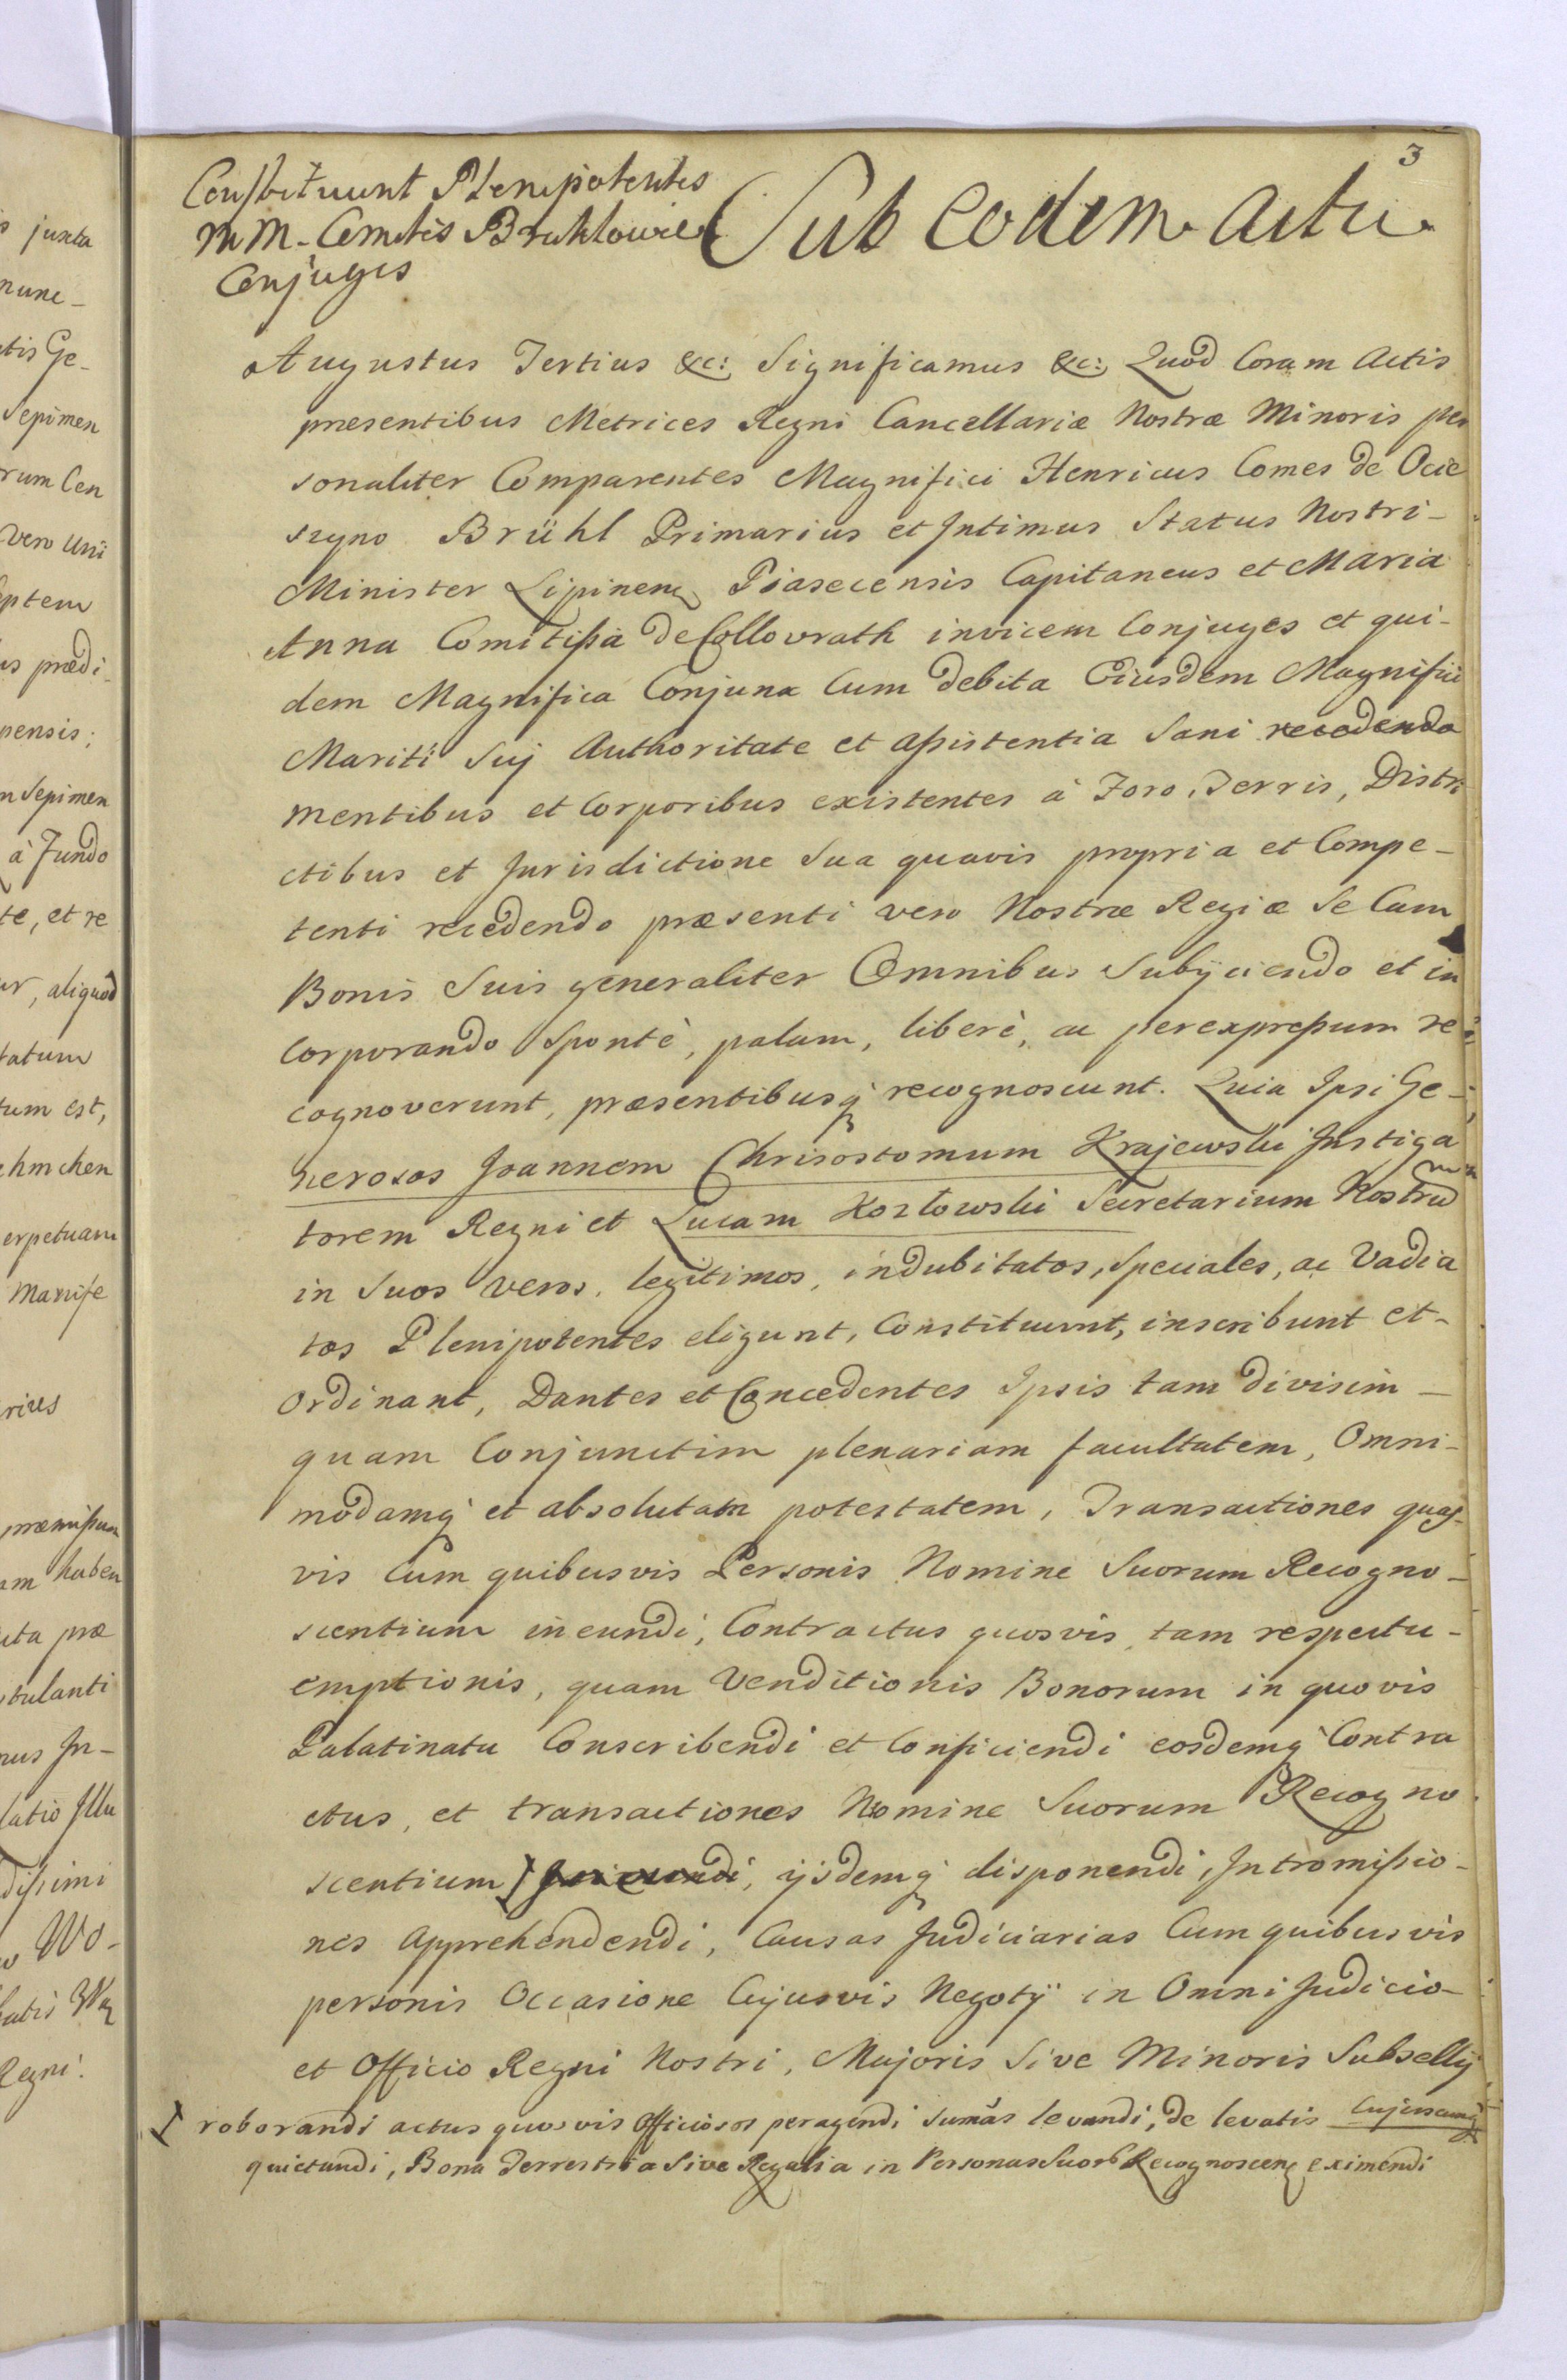 3
Constituunt Plenipotentes
MM. Comites Bruhlowie
Conjuges
Sub eodem actu
Augustus Tertius &c: Significamus &c: Quod Coram Actis
praesentibus Metrices Regni Cancellariæ Nostræ Minoris per
sonaliter Comparentes Magnifici Henricus Comes de Ocie
szyno Brühl Primarius et Intimus Status Nostri-
Minister Lipinens Piasecensis Capitaneus et Maria
Anna Comitißa de Collovrath invicem Conjuges et qui-
dem Magnifica Conjunx Cum debita Ejusdem Magnifici
Mariti Suj Authoritate et aßistentia Sani recedendo
mentibus et Corporibus existentes à Foro, Terris, Distri
ctibus et Jurisdictione Sua quavis propria et Compe-
tenti recedendo præsenti vero Nostræ Regiæ Se Cum
Bonis Suis generaliter Omnibus Subijciendo et in
corporando Spontè, palam, liberè, ac perexpreßum re
cognoverunt, præsentibusq recognoscunt. Quia Ipsi Ge-
nerosos Joannem Chrisostomum Krajewski Instiga
torem Regni et Lucam Kozłowski Secretarium Nostrum
in Suos veros, legitimos, indubitatos, Speciales, ac Vadia
tos Plenipotentes eligunt, Constituunt, inscribunt et-
Ordinant, Dantes et Concedentes Ipsis tam divisim-
quam Conjunctim plenariam facultatem, Omni-
modamq et absolutam potestatem, Transactiones quas-
vis Cum quibusvis Personis Nomine Suorum Recogno-
scentium ineundi, Contractus quosvis, tam respectu-
emptionis, quam Venditionis Bonorum in quovis
Palatinatu Conscribendi et Conficiendi eosdemq Contra
ctus, et transactiones Nomine Suorum Recogno
scentium, ijsdemq disponendi, Intromißio-
nes Apprehendendi, Causas Judiciarias Cum quibusvis
personis Occasione Cujusvis Negotÿ in Omni Judicio-
et Officio Regni Nostri, Majoris Sive Minoris Subsellÿ
roborandi actus quosvis Officiosos peragendi Sumas levandi, de levatis Cujuscunq
quietandi, Bona Terrestria Sive Regalia in Personas Suor Recognoscen eximendi